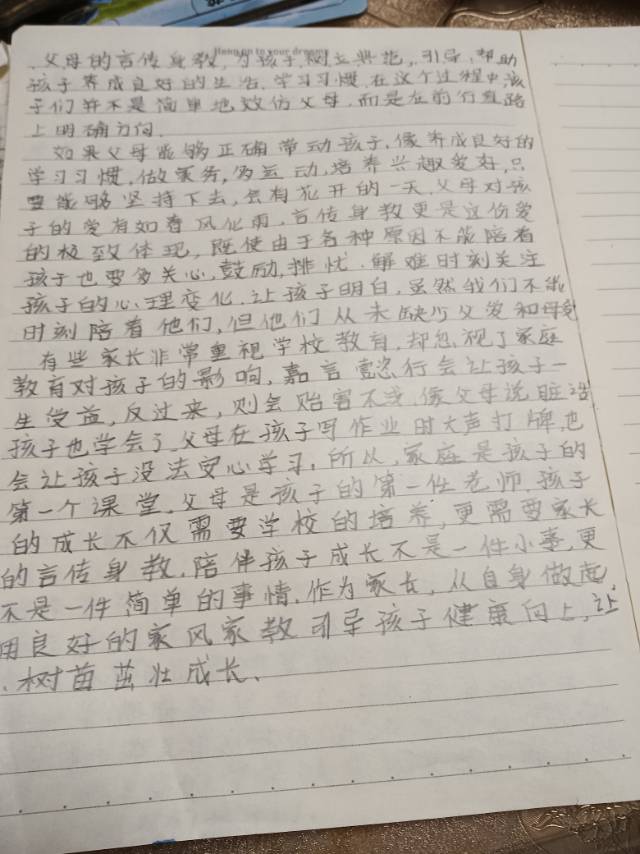 Hang on to your dreams
父母的言传身教,为孩子树立典范,引导、帮助
孩子养成良好的生活、学习习惯,在这个过程中,孩
子们并不是简单地效仿父母,而是在前行道路
上明确方向.
如果父母能够正确带动孩子,像养成良好的
学习习惯,做家务,多运动,培养兴趣爱好,只
要能够坚持下去,会有花开的一天.父母对孩
子的爱有如春风化雨,言传身教更是这份爱
的极致体现,既使由于各种原因不能陪着
孩子也要多关心,鼓励,排忧、解难时刻关注
孩子的心理变化.让孩子明白,虽然我们不能
时刻陪着他们,但他们从未缺少父爱和母爱
有些家长非常重视学校教育,却忽视了家庭
教育对孩子的影响,嘉言懿行会让孩子一
生受益,反过来,则会贻害不浅.像父母说脏话
孩子也学会了.父母在孩子写作业时大声打牌,也
会让孩子没法安心学习,所以,家庭是孩子的
第一个课堂.父母是孩子的第一任老师.孩子
的成长不仅需要学校的培养,更需要家长
的言传身教.陪伴孩子成长不是一件小事,更
不是一件简单的事情.作为家长,从自身做起,
用良好的家风家教引导孩子健康向上,让
树苗茁壮成长、